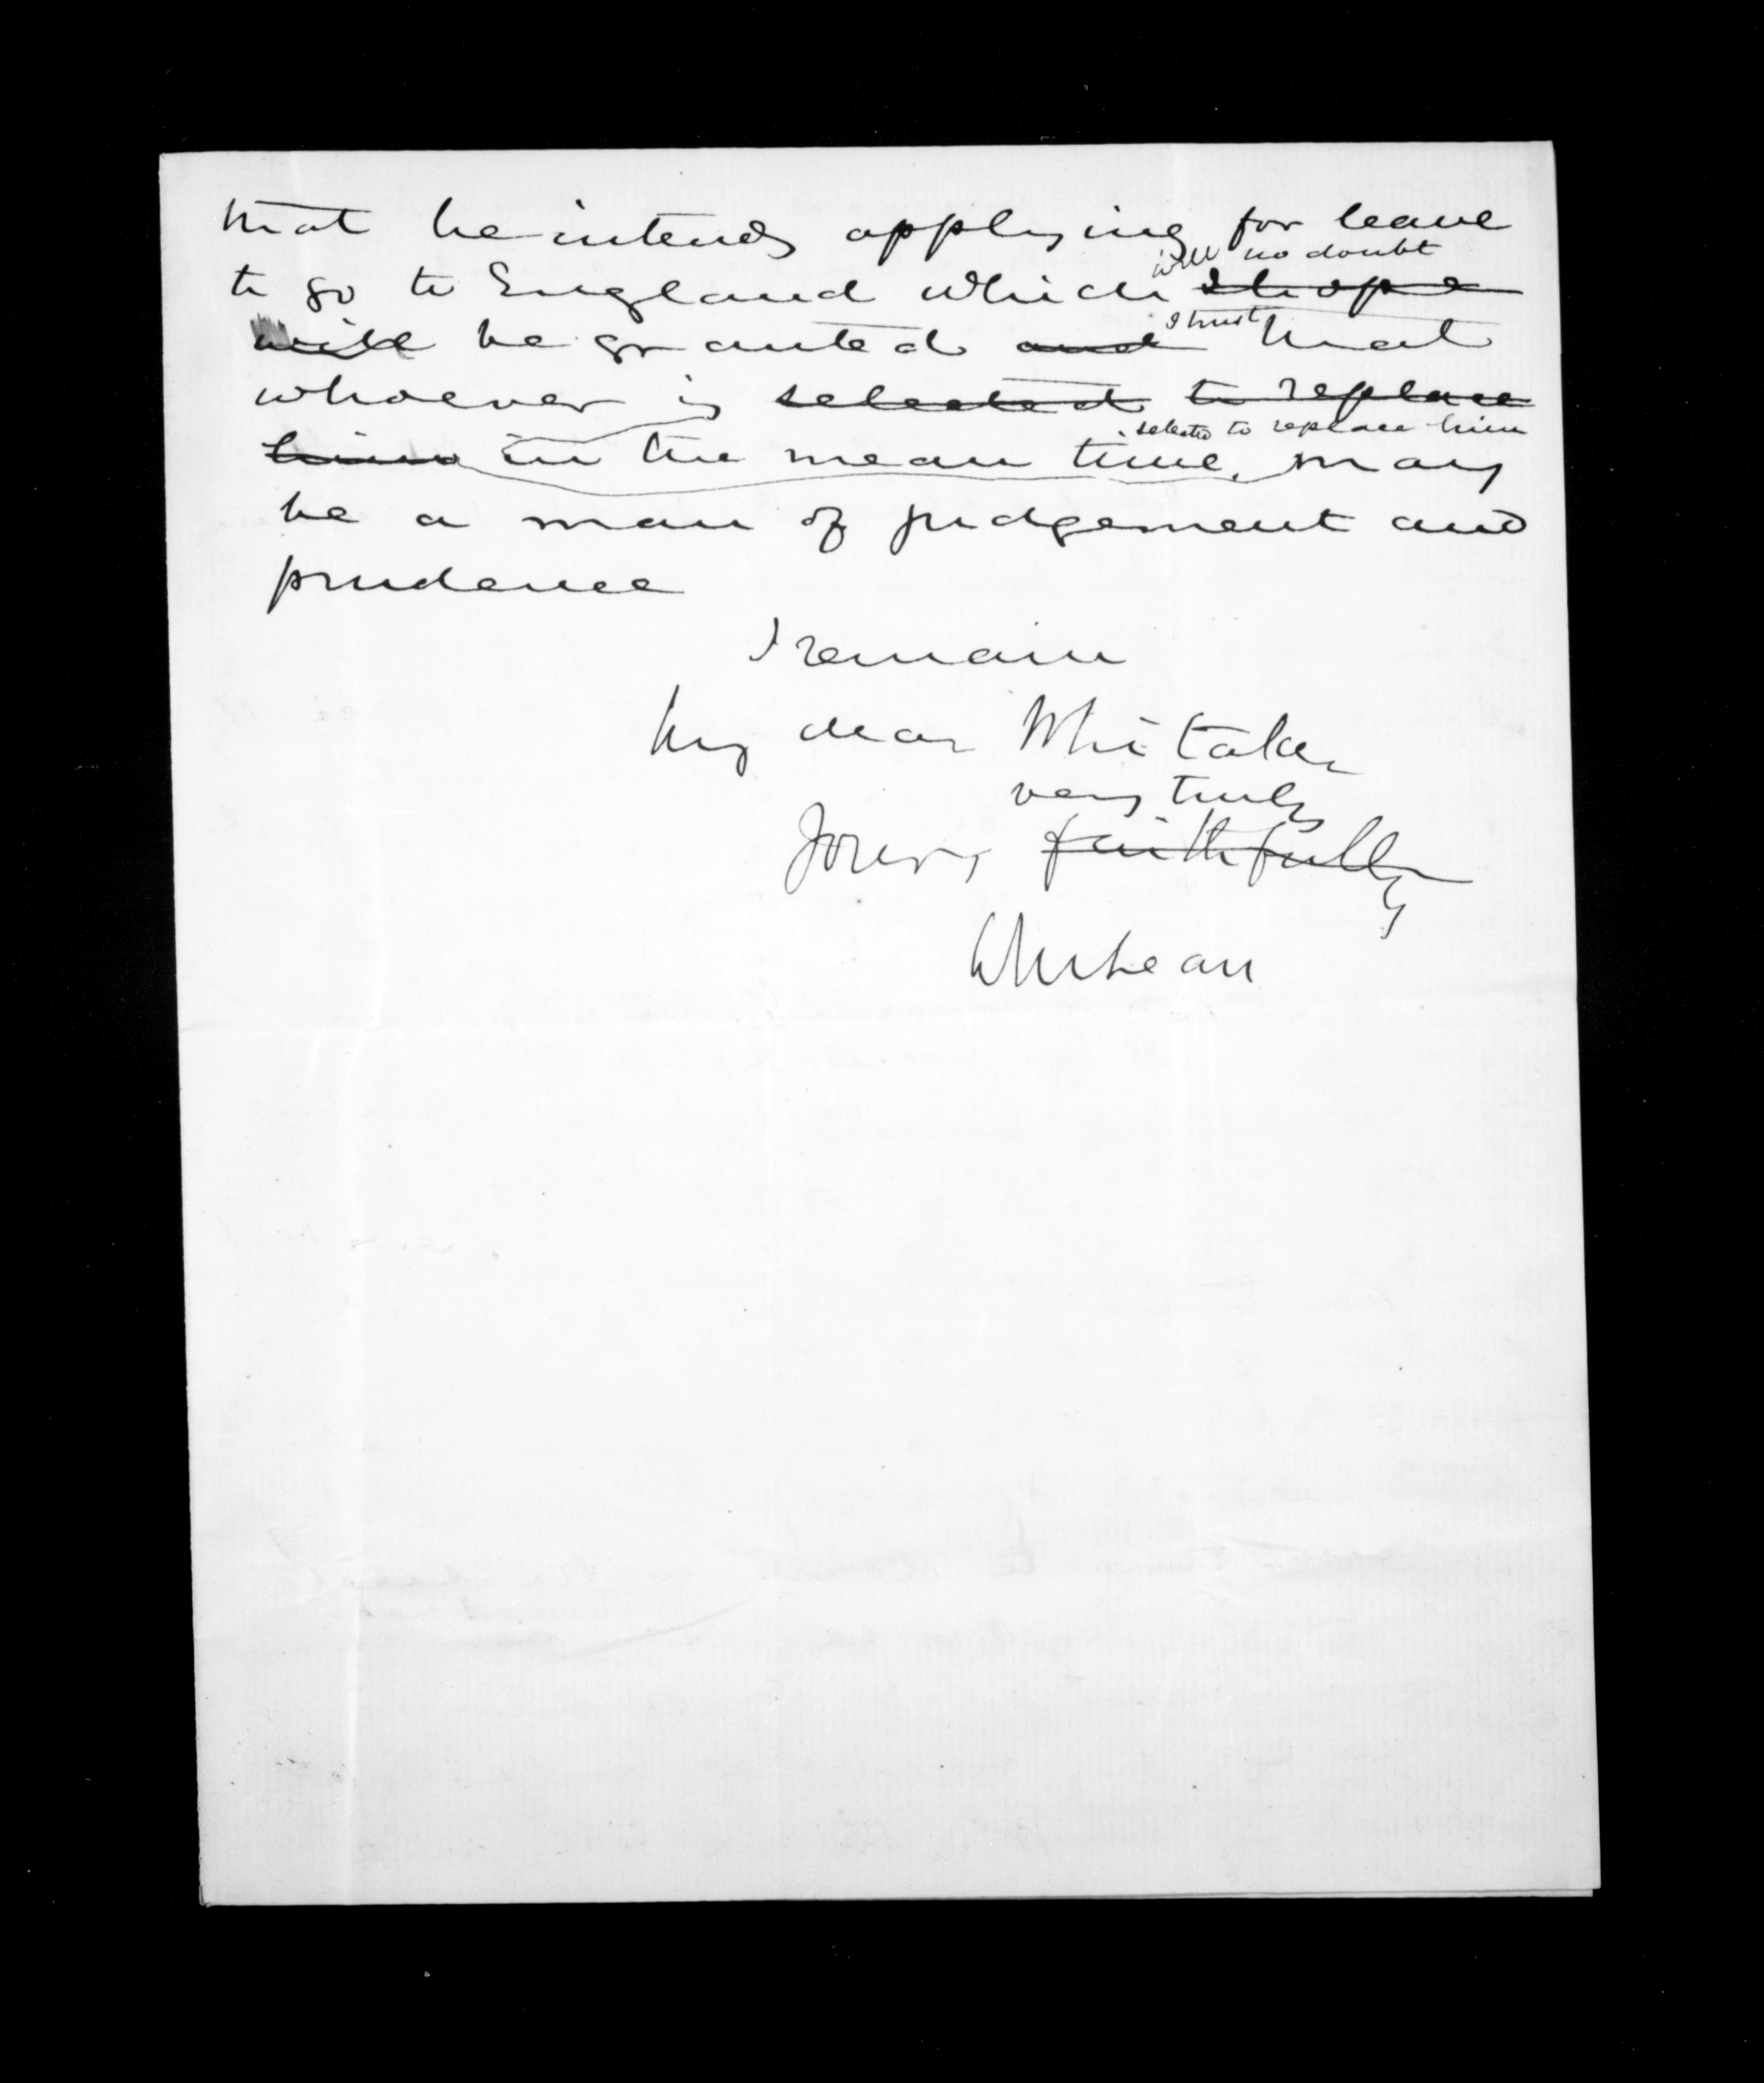 that he intends applying for leave
will no doubt
to go to England which I hope
I trust
will be granted and that
whoever is selected to replace
selected to replace him
him in the mean time, may
be a man of judgement and
prudence
I remain
My dear Whitaker
very truly
Yours faithfully